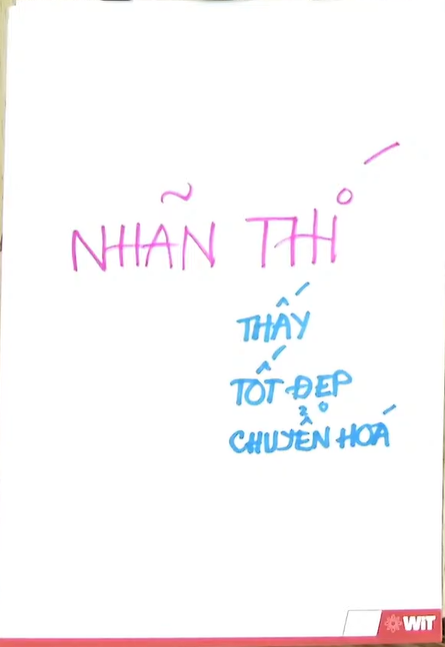 NHÃN THÍ
THẤY
TỐT ĐẸP
CHUYỂN HOÁ
WIT